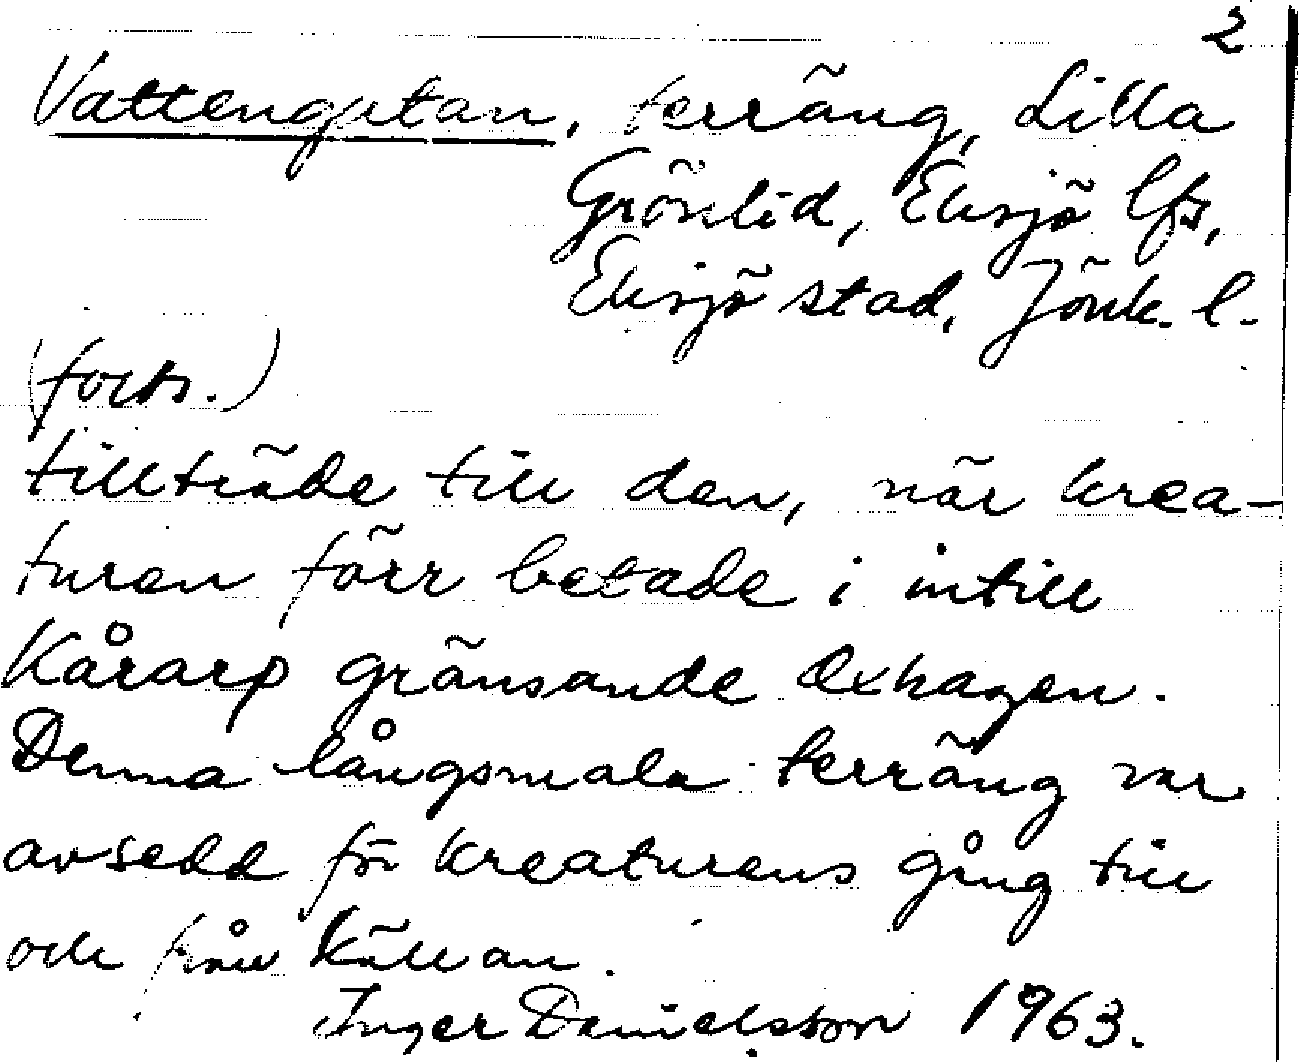 2
Vattengatan, terräng, Lilla
Grönlid, Eksjö lfs,
Eksjö stad, Jönk. l.
(forts.)
tillträde till den, när krea-
turen förr betade i intill
Kårarp gränsande Oxhagen.
Denna långsmala terräng var
avsedd för kreaturens gång till
och från källan.
Inger Danielsson 1963.